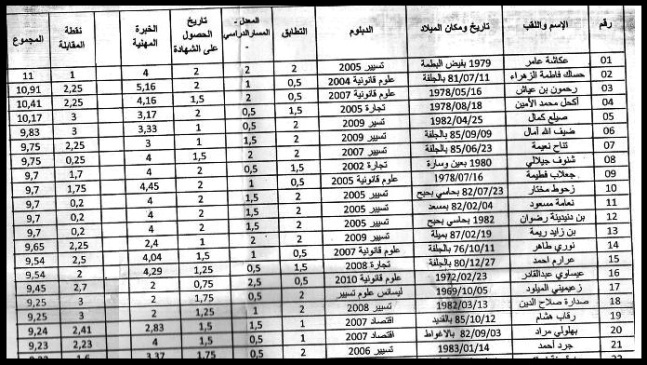 رقم الإسم واللقب تاريخ ومكان الميلاد الدبلوم التطابق المعدل - المسار الدراسي - تاريخ الحصول على الشهادة الخبرة المهنية نقطة المقابلة المجموع
01 عكاشة عامر 1979 بفيض البطمة تسيير 2005 2 2 2 4 1 11
02 حساك فاطمة الزهراء 81/07/11 بالجلفة علوم قانونية 2004 0,5 1 2 5,16 2,25 10,91
03 رحمون بن عياش 1978/05/16 علوم قانونية 2007 0,5 2 1,5 4,16 2,25 10,41
04 أكحل محمد الأمين 1978/08/18 تجارة 2005 1,5 0,5 2 3,17 3 10,17
05 صيلع كمال 1982/04/25 تسيير 2009 2 0,5 1 3,33 3 9,83
06 ضيف الله أمال 85/09/09 بالجلفة تسيير 2009 2 1,5 1 3 2,25 9,75
07 تتاح نعيمة 85/06/23 بالجلفة تسيير 2007 2 2 1,5 4 0,25 9,75
08 شنوف جيلالي 1980 بعين وسارة تجارة 2002 1,5 0,5 2 4 1,7 9,7
09 جعلاب فطيمة 1978/07/16 علوم قانونية 2005 0,5 1 2 4,45 1,75 9,7
10 زحوط مختار 82/07/23 بحاسي بحبح تسيير 2005 2 1,5 2 4 0,2 9,7
11 نعامة مسعود 82/02/04 بمسعد تسيير 2005 2 1,5 2 4 0,2 9,7
12 بن دنيدينة رضوان 1982 بحاسي بحبح تسيير 2005 2 1,5 2 4 0,2 9,7
13 بن زايد ريمة 87/02/19 بميلة تسيير 2009 2 2 1 2,4 2,25 9,65
14 نوري طاهر 76/10/11 بالجلفة علوم قانونية 2007 0,5 1 1,5 4,04 2,5 9,54
15 عرارم احمد 80/12/27 بالجلفة تجارة 2008 1,5 0,5 1,25 4,29 2 9,54
16 عيساوي عبدالقادر 1972/02/23 علوم قانونية 2010 0,5 2,5 0,75 2 2,7 9,45
17 زعيميني الميلود 1969/10/05 ليسانس علوم تسيير 2 0,5 1,75 2 3 9,25
18 صدارة صلاح الدين 1982/03/13 تسيير 2008 2 1 1,25 2 3 9,25
19 رقاب هشام 85/10/12 بالقديد اقتصاد 2007 1,5 1 1,5 2,83 2,41 9,24
20 بهلولي مراد 82/09/03 بالاغواط اقتصاد 2007 1,5 0,5 4 2,23 9,23
21 جرد أحمد 1983/01/14 تسيير 2006 2 0,5 1,75 3,37 9,22